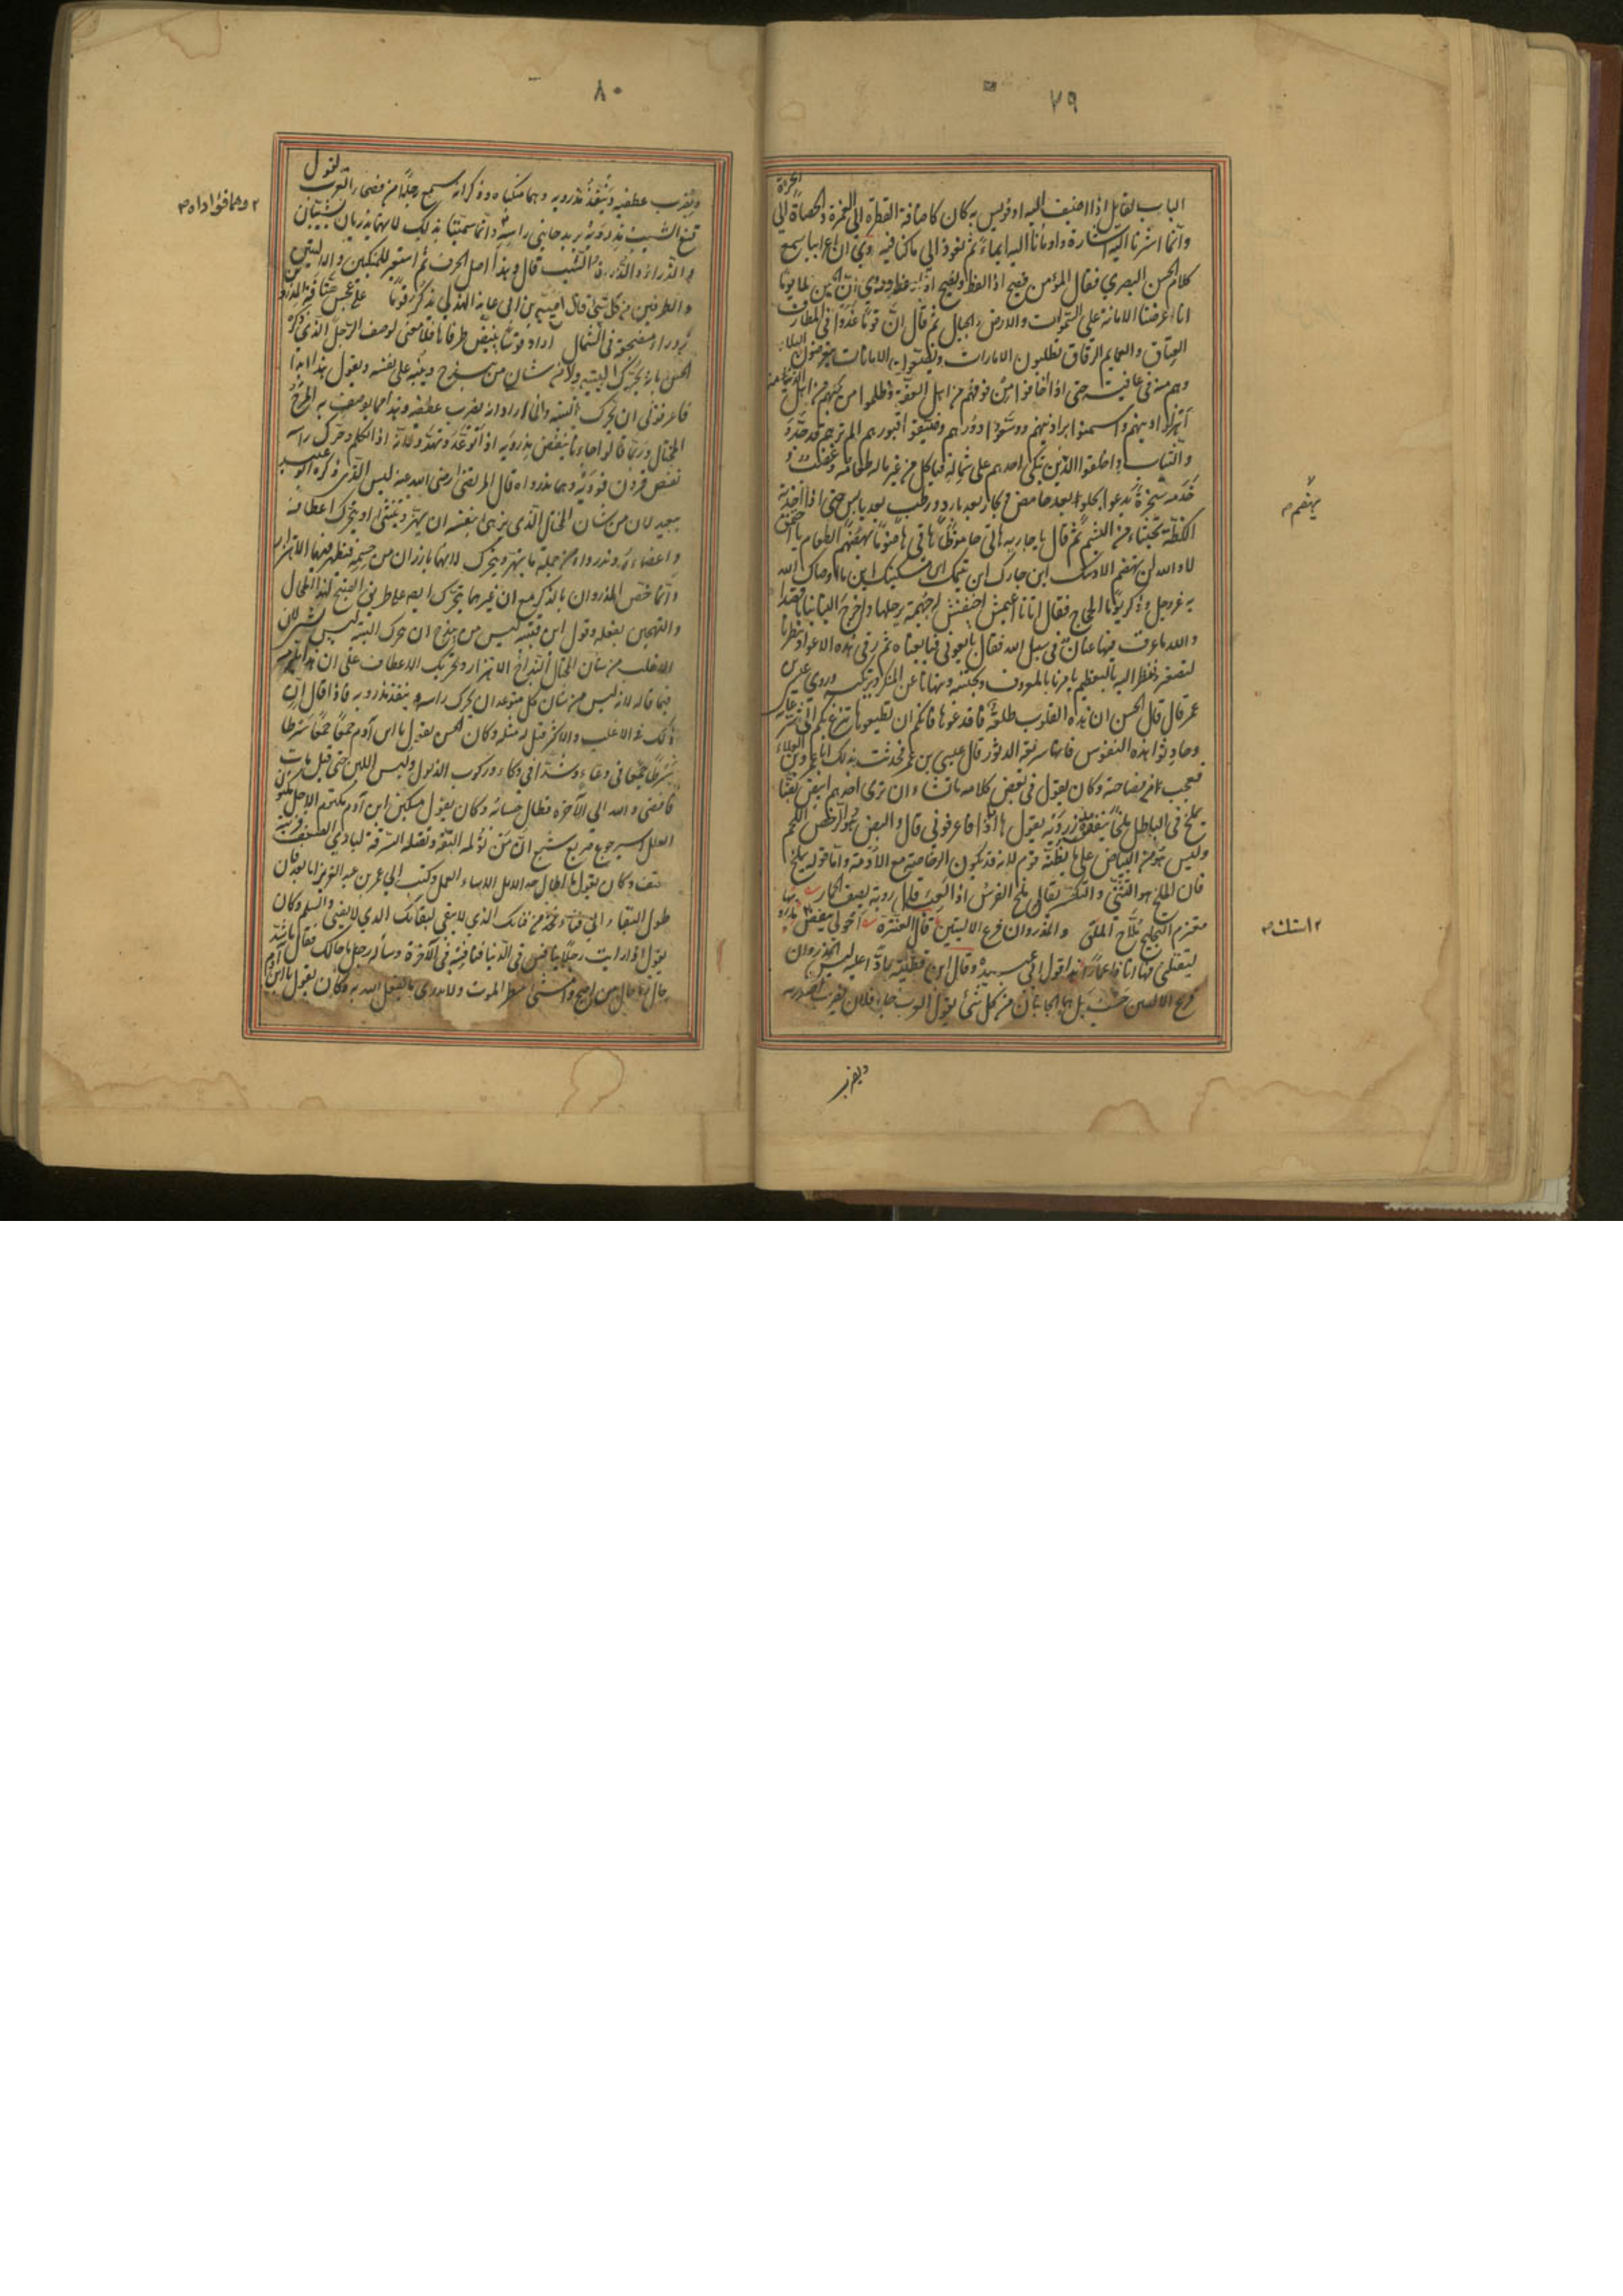 ٧٩
الجرة
الباب لقايل اذا اضيف اليه او قويس به كان كاضافة القطرة الى الغمرة والحصاة الى
وانما اشرنا اليه اشارة واومأنا اليه ايماء ثم نعود الى ما كنا فيه وروى ان اعرابيا سمع
كلام الحسن البصري فقال المؤمن فصيح اذا لفظ ونصيح اذا وعظ وروى ان الحسن تلا يوما
انا عرضنا الامانة على السموات والارض والجبال ثم قال ان قوما غدوا في المطارف
العتاق والعمايم الرقاق يطلبون الامارات ويضيعون الامانات يتعرضون للبلاء
وهم منه في عافية حتى اذا اخافوا من فوقهم من اهل العفة وظلموا من تحتهم من اهل الذمة
اهزلوا دينهم واسمنوا براذينهم ووسعوا دورهم وضيقوا قبورهم الم ترهم قد جددوا
الثياب واخلقوا الدين يتكي احدهم على شماله فياكل من غير ماله طعامه غصب
وخدمه سخرة يدعوا بحلو بعد حامض وبحار بعد بارد ورطب بعد يابس حتى اذا اخذته
الكظة تجشاء من البشم ثم قال يا جارية هاتي حاطوما هاتي هاضوما يهضم الطعام يا احمق
لا والله لن تهضم الا دينك اين جارك اين يتيمك اين مسكينك اين ما اوصاك الله
به عز وجل وذكر يوما الحجاج فقال اتانا اعيمش اخيفش له جميمة يرجلها واخرج الينا بنانا قصارا
والله ما عرق فيها عنان في سبيل الله فقال بايعوني فبايعناه ثم رقى هذه الاعواد ينظر الينا
بالتصغير وننظر اليه بالتعظيم يامرنا بالمعروف ويجتنبه وينهانا عن المنكر ويرتكبه وروى عيسى بن
عمر قال قال الحسن ان هذه القلوب طلعة فاقدعوها فانكم ان تطيعوها تنزع بكم الى شر غاية
وحادثوا هذه النفوس فانها سريعة الدثور قال عيسى بن عمر فحدثت بذلك ابا عمرو بن العلاء
فعجب من فصاحته وكان يقول في بعض كلامه ما تشاء ان ترى احدهم ابيض بضا
يملخ في الباطل ملخا ينفض مذرويه يقول ها انا ذا فاعرفوني قال والبض هو الرخص اللحم
وليس هو من البياض على ما يظنه قوم لانه قد يكون الرخاصة مع الادمة واما قوله يملخ
فان الملخ هو التثني والتكسر يقال ملخ الفرس اذا لعب قال روبة يصف الحمار
معتزم التجليح ملاخ الملق والمذروان فرعا الاليتين قال عنترة احولي تنفض
لتقتلني فها انا ذا عمارا هذا قول ابي عبيدة وقال ابن قتيبة رادا عليه ليس المذروان
فرعي الاليتين حسب بل هما الجانبان من كل شيء يقول العرب جاء فلان يضرب اصدريه
يهضم
٢ استك ٣
ويضرب
٨٠
يقول
ويضرب عطفيه وينفض مذرويه وهما منكباه وذكر انه سمع رجلا من فصحاء العرب
قنع الشيب مذرويه يريد جانبي راسه وانما سميتا بذلك لانهما يذريان اي يشيبان
والذراء والذرء الشيب قال وهذا اصل الحرف ثم استعير للمنكبين والاليتين
والطرفين من كل شيء قال امية بن ابي عايذ الهذلي يذكر قوسا على عجس هتافة المذرو
زوراء مضجعة في الشمال اراد قوسا ينبض طرفاها فلا معنى لوصف الرجل الذي ذكره
الحسن بانه يحرك اليتيه ولا من شان من يبذخ وينبه على نفسه ويقول ها انا ذا
فاعرفوني ان يحرك اليتيه وانما اراد انه يضرب عطفيه وهذا مما يوصف به المرح
المختال وربما قالوا جاءنا ينفض مذرويه اذا توعد وتهدد لانه اذا تكلم وحرك راسه
نفض قرون فوديه وهما مذرواه قال المرتضى رضي الله عنه ليس الذي ذكره ابو عبيد
ببعيد لان من شان المختال الذي يزهى بنفسه ان يهتز ويتثنى او يتحرك اعطافه
واعضاءه ومذرواه من جملة ما يهتز ويتحرك لانهما بارزان من جسمه فيظهر فيهما الاهتزاز
وانما خص المذروان بالذكر مع ان غيرهما يتحرك ايضا على طريق التقبيح لهذا المختال
والتهجين بفعله وقول ابن قتيبة ليس من يبذخ ان يحرك اليتيه ليس بشيء لان
الاغلب من شان المختال البذاخ الاهتزاز وتحريك الاعطاف على ان هذا يلزمه
فيما قاله لانه ليس من شان كل متوعد ان يحرك راسه وينفض مذرويه فاذا قال ان
ذلك هو الاغلب والاكثر قيل له مثله وكان الحسن يقول يا ابن آدم جمعا جمعا سرطا
سرطا جمعا في وعاء وشدا في وكاء وركوب الذلول ولبس اللين حتى قيل مات
فافضى والله الى الآخرة فطال حسابه وكان يقول مسكين ابن آدم مكتوم الاجل مكنون
العلل اسير جوع صريع شبع ان من تؤلمه البقة وتقتله الشرقة لبادي الضعف فريسة
حتف وكان يقول ما اطال احد الامل الا اساء العمل وكتب الى عمر بن عبد العزيز اما بعد فان
طول البقاء الى فناء فخذ من فنائك الذي لا يبقى لبقائك الذي لا يفنى والسلم وكان
يقول اذا رايت رجلا ينافس في الدنيا فنافسه في الآخرة وسأله رجل ما حالك فقال باشد
حال ما حال من اصبح وامسى ينتظر الموت ولا يدري ما يفعل الله به وكان يقول يا ابن آدم
٢ وهما فؤاداه ٣